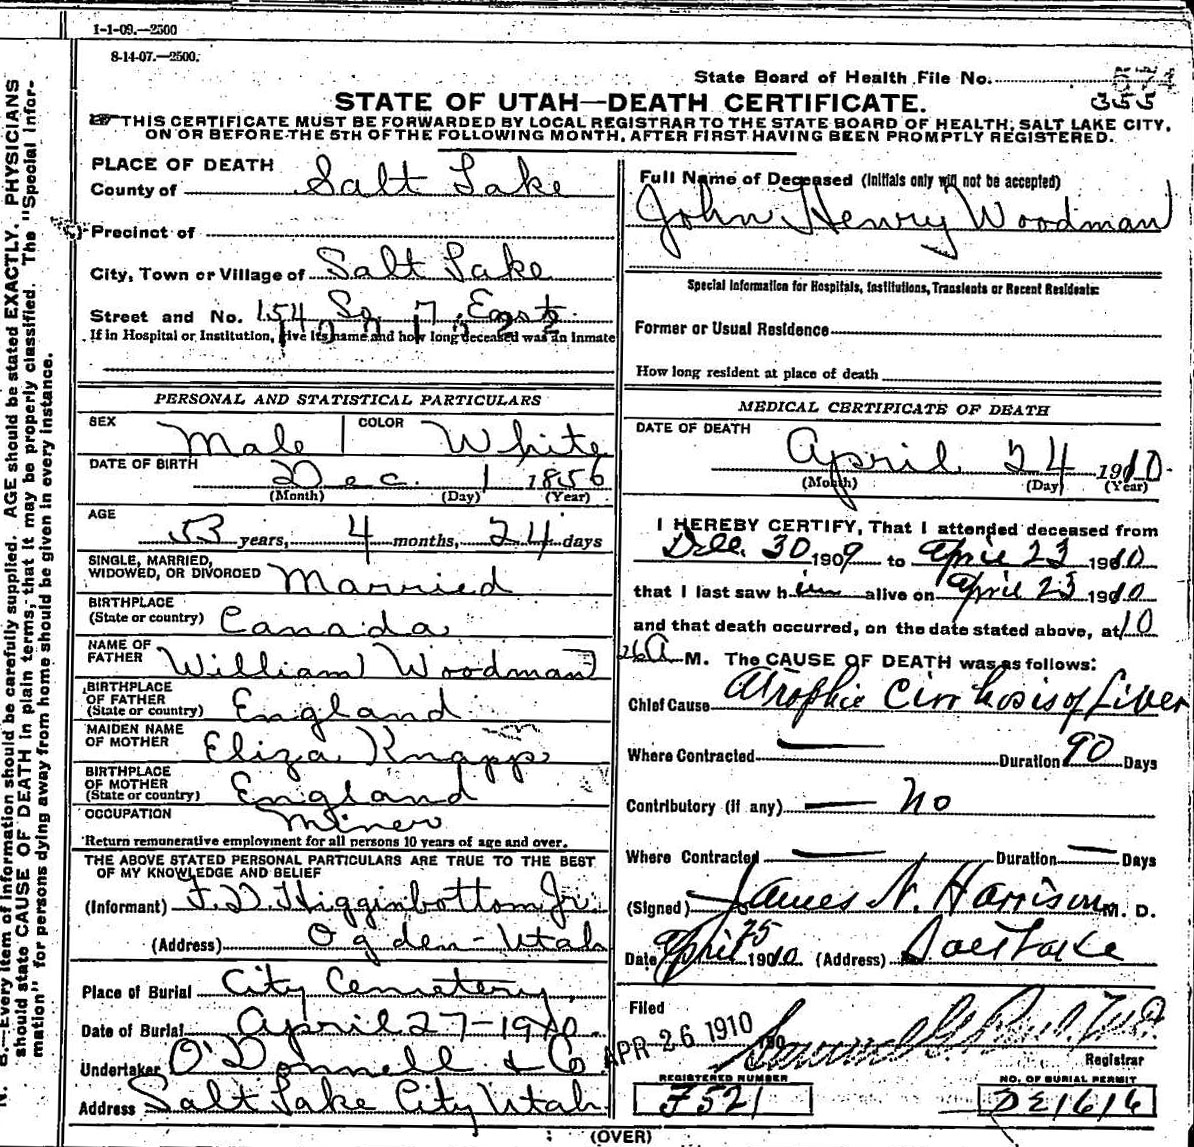 1-1-09.—2500
8-14-07.—2500.
State Board of Health File No.
355
STATE OF UTAH—DEATH CERTIFICATE.
THIS CERTIFICATE MUST BE FORWARDED BY LOCAL REGISTRAR TO THE STATE BOARD OF HEALTH, SALT LAKE CITY,
ON OR BEFORE THE 5TH OF THE FOLLOWING MONTH, AFTER FIRST HAVING BEEN PROMPTLY REGISTERED.
N. B.—Every item of information should be carefully supplied. AGE should be stated EXACTLY. PHYSICIANS
should state CAUSE OF DEATH in plain terms, that it may be properly classified. The "Special Infor-
mation" for persons dying away from home should be given in every instance.
PLACE OF DEATH
County of Salt Lake
Precinct of
City, Town or Village of Salt Lake
Street and No. 154 So. 7 East.
If in Hospital or Institution, give its name and how long deceased was an inmate
PERSONAL AND STATISTICAL PARTICULARS
SEX Male COLOR White
DATE OF BIRTH Dec. 1 1856
(Month) (Day) (Year)
AGE 53 years, 4 months, 24 days
SINGLE, MARRIED,
WIDOWED, OR DIVORCED Married
BIRTHPLACE
(State or country) Canada
NAME OF
FATHER William Woodman
BIRTHPLACE
OF FATHER
(State or country) England
MAIDEN NAME
OF MOTHER Eliza Knapp
BIRTHPLACE
OF MOTHER
(State or country) England
OCCUPATION Miner
Return remunerative employment for all persons 10 years of age and over.
THE ABOVE STATED PERSONAL PARTICULARS ARE TRUE TO THE BEST
OF MY KNOWLEDGE AND BELIEF
(Informant) F. D. Higginbottom Jr.
(Address) Ogden - Utah
Place of Burial City Cemetery,
Date of Burial April 27-1910.
Undertaker O'Donnell & Co
Address Salt Lake City Utah
Full Name of Deceased (Initials only will not be accepted)
John Henry Woodman
Special Information for Hospitals, Institutions, Transients or Recent Residents:
Former or Usual Residence
How long resident at place of death
MEDICAL CERTIFICATE OF DEATH
DATE OF DEATH
April 24 1910.
(Month) (Day) (Year)
I HEREBY CERTIFY, That I attended deceased from
Dec. 30 1909 to April 23 1910
that I last saw him alive on April 23 1910
and that death occurred, on the date stated above, at 10
A M. The CAUSE OF DEATH was as follows:
Chief Cause Atrophic Cirrhosis of Liver
Where Contracted — Duration 90 Days
Contributory (if any) — no
Where Contracted — Duration — Days
(Signed) James N. Harrison M. D.
Date April 25 1910. (Address) Salt Lake
Filed
APR 26 1910
Registrar
REGISTERED NUMBER
F521
NO. OF BURIAL PERMIT
DE1616
(OVER)